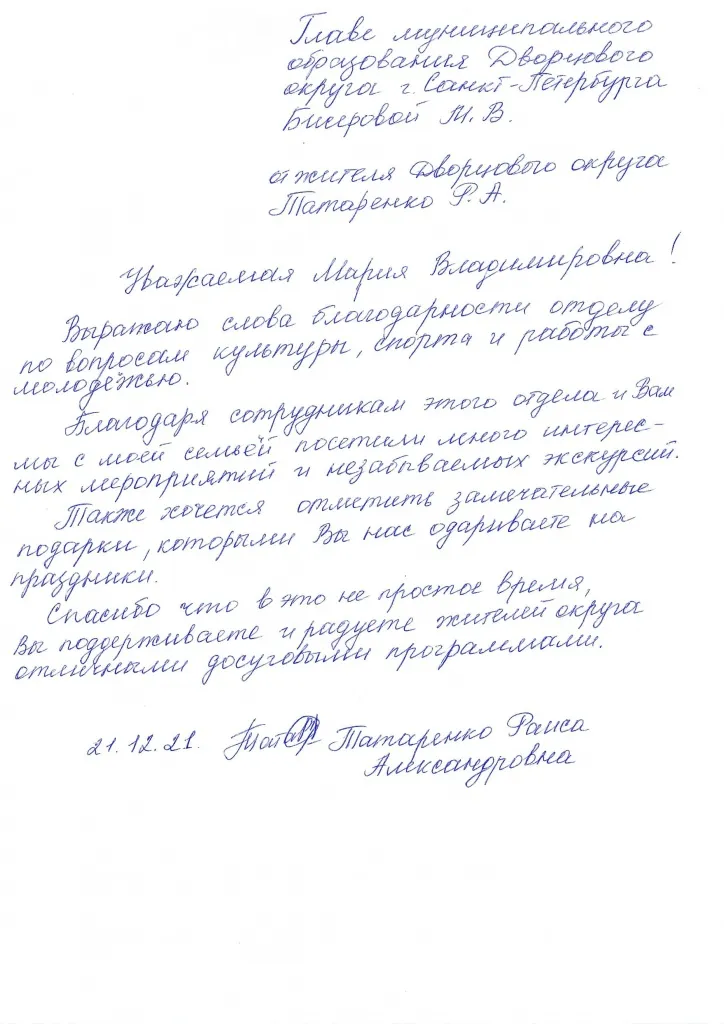 Главе муниципального
образования Дворцового
округа г. Санкт-Петербурга
Бисеровой М. В.
от жителя Дворцового округа
Татаренко Р. А.
Уважаемая Мария Владимировна!
Выражаю слова благодарности отделу
по вопросам культуры, спорта и работы с
молодёжью.
Благодаря сотрудникам этого отдела и Вам
мы с моей семьёй посетили много интерес-
ных мероприятий и незабываемых экскурсий.
Также хочется отметить замечательные
подарки, которыми Вы нас одариваете на
праздники.
Спасибо что в это не простое время,
Вы поддерживаете и радуете жителей округа
отличными досуговыми программами.
21.12.21. Татаренко Раиса
Александровна